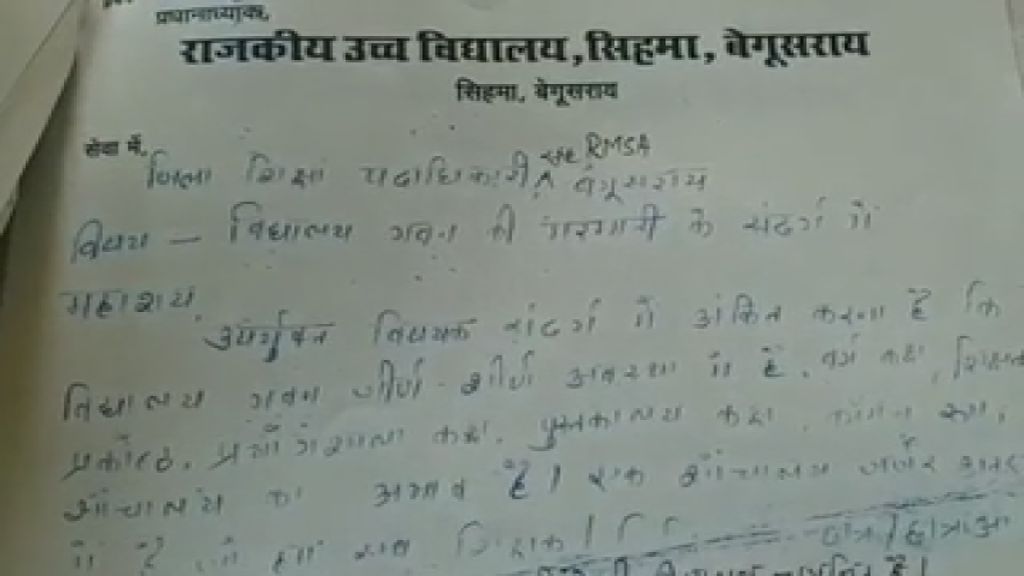 प्रधानाध्यापक,
राजकीय उच्च विद्यालय, सिहमा, बेगूसराय
सिहमा, बेगूसराय
सेवा में,
जिला शिक्षा पदाधिकारी सह RMSA बेगूसराय
विषय — विद्यालय भवन की मरम्मती के संदर्भ में
महाशय,
उपर्युक्त विषयक संदर्भ में अंकित करना है कि
विद्यालय भवन जीर्ण-शीर्ण अवस्था में है, वर्ग कक्ष, शिक्षक
प्रकोष्ठ, प्रयोगशाला कक्ष, पुस्तकालय कक्ष, कॉमन रूम,
शौचालय का अभाव है। एक शौचालय जर्जर
में है शिक्षक / छात्र/छात्राओं
है।